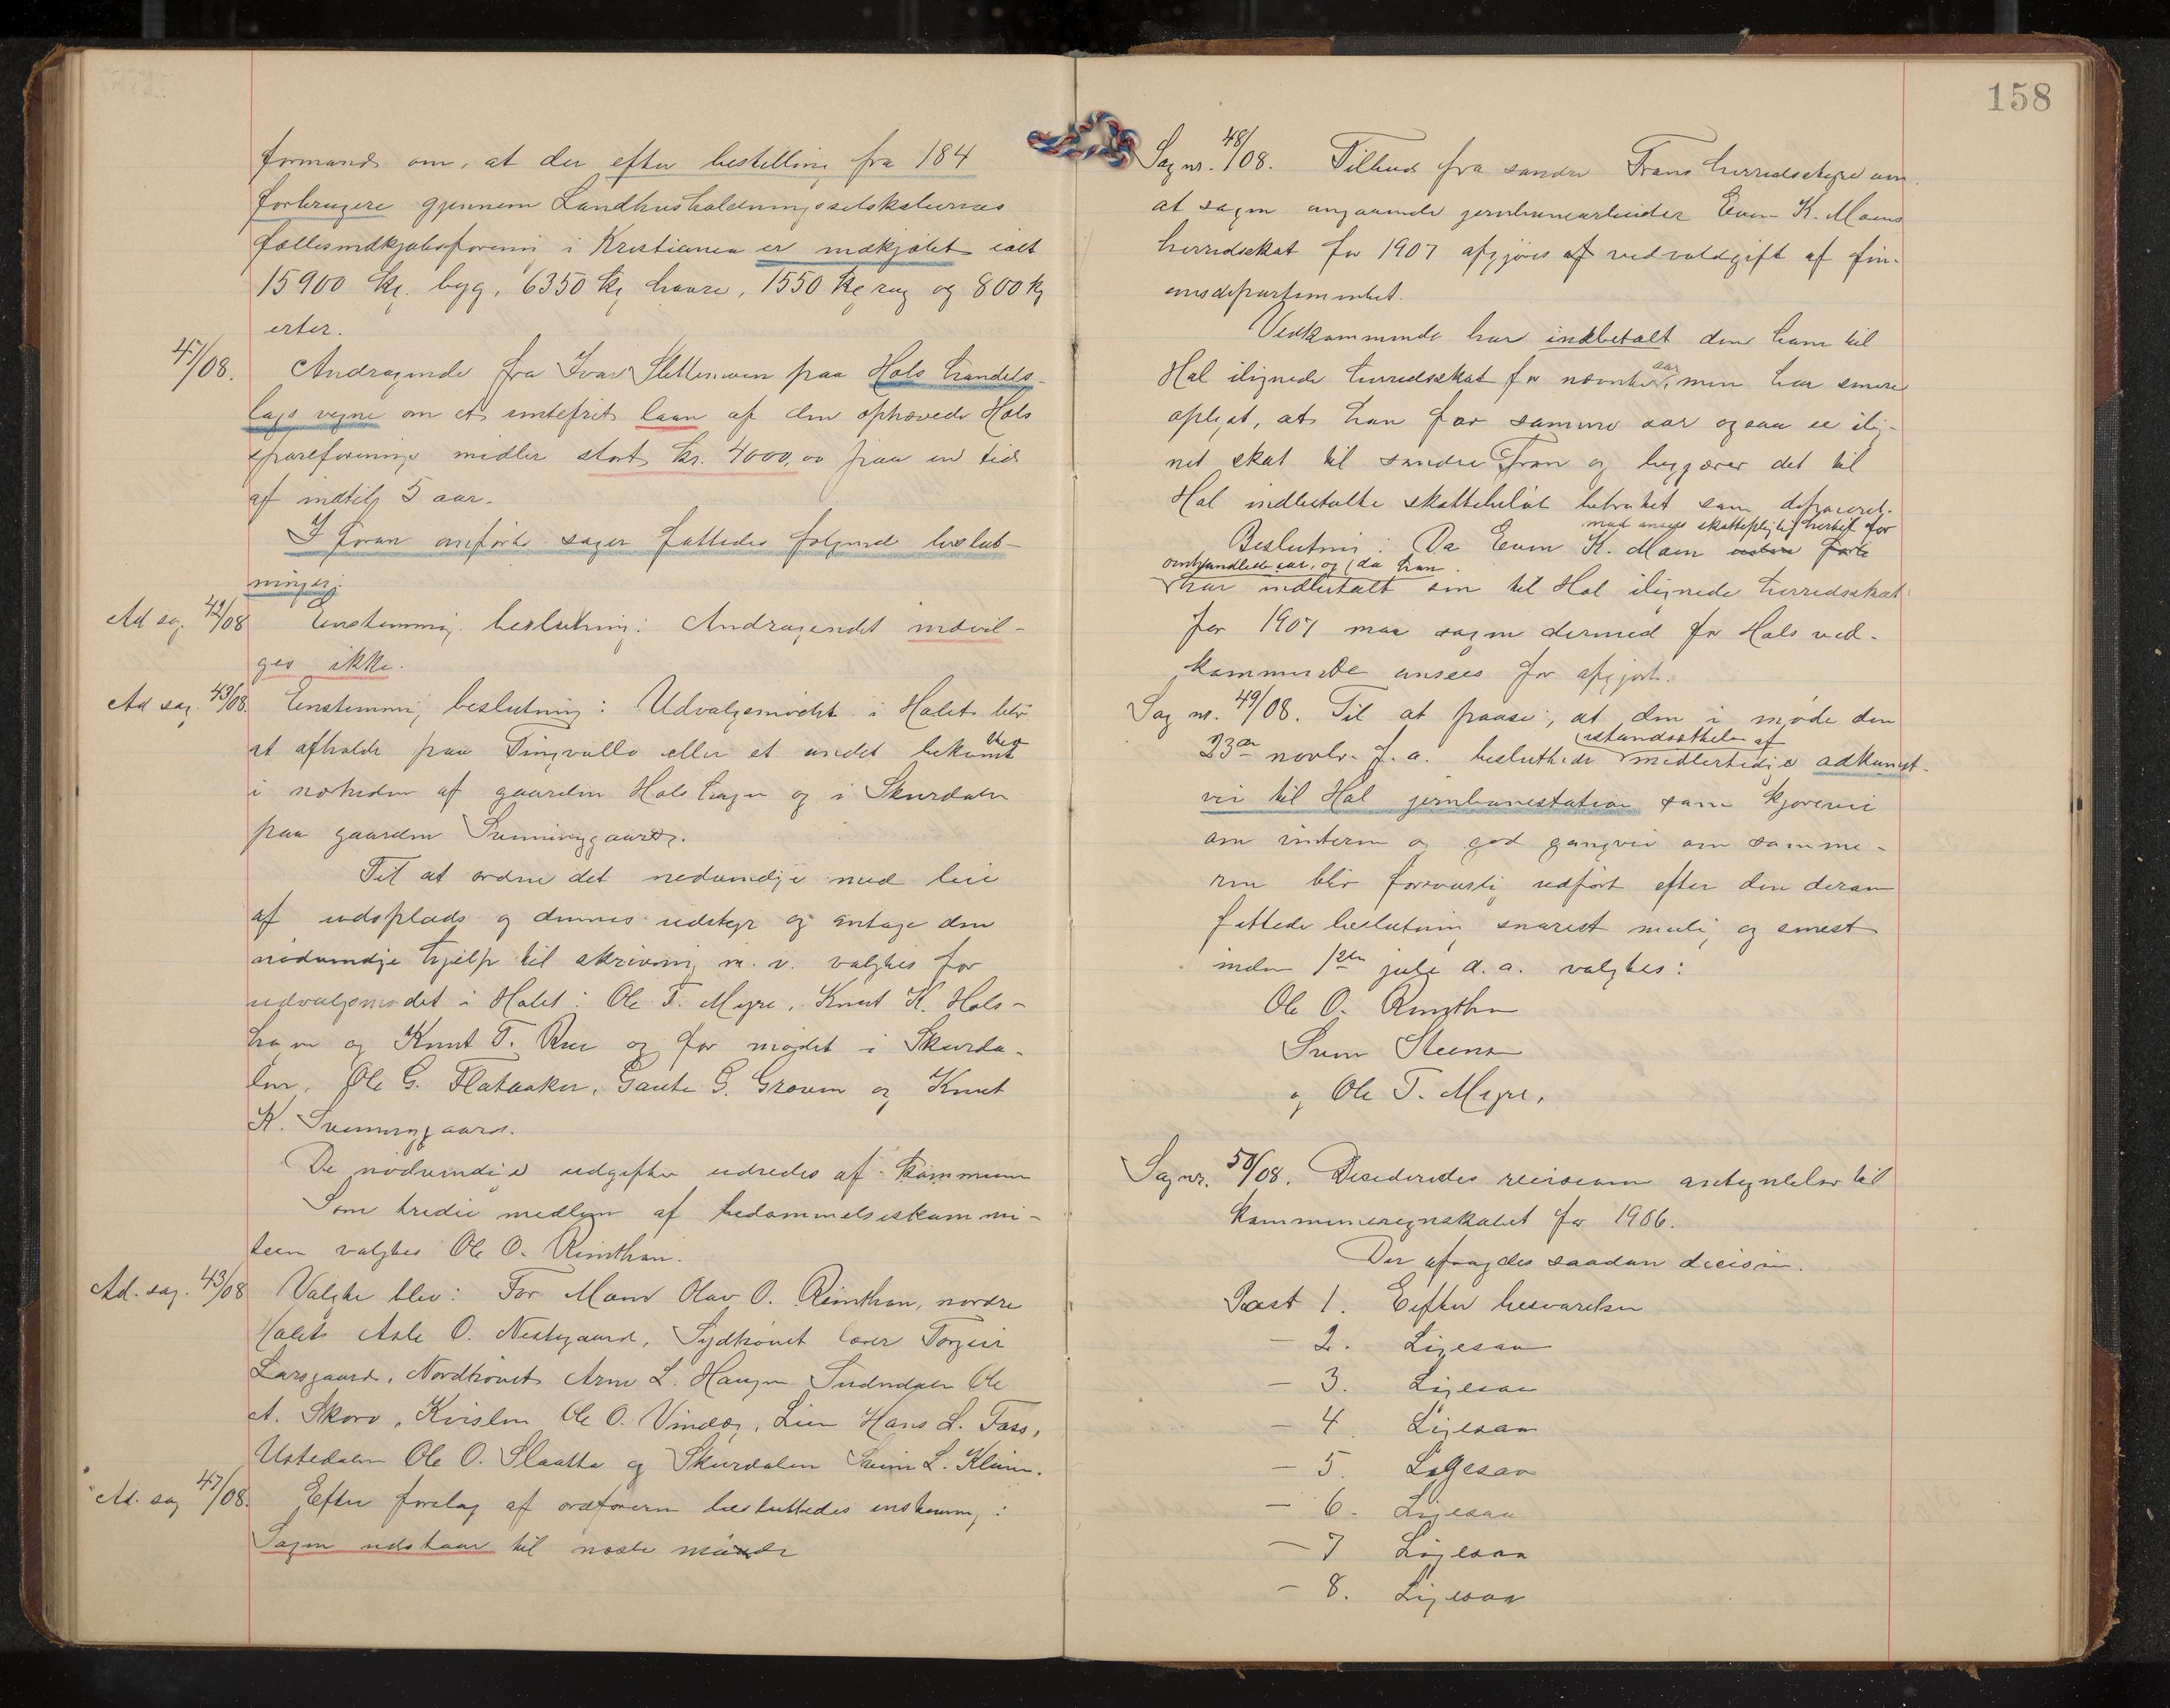 formand om, at der efter bestilling fra 184
forbrugere gjennem Landhusholdningsselskabernes
fællesindkjøbsforening i Kristiania er indkjøbt ialt
15900 kg. byg, 6350 kg havre, 1550 kg rug og 800 kg
erter.
47/08. Andragende fra Ivar Slettemoen paa Hols handels-
lags vegne om et rentefrit laan af den ophævede Hols
spareforenings midler stort kr. 4000,00 paa en tid
af indtil 5 aar.
I foran anførte sager fattedes følgende beslut-
ninger:
Ad sag 42/08 Enstemmig beslutning: Andragendet indvil-
ges ikke.
Ad sag 43/08. Enstemmig beslutning: Udvalgsmødet i Holet blir
at afholde paa Tingvold eller et andet bekvemt sted
i nærheden af gaarden Hols hagen og i Skurdalen
paa gaarden Svenninggaard.
Til at ordne det nødvendige med leie
af udst. plads og dennes udstyr og antage den
nødvendige hjelp til skrivning m. v. valgtes for
udvalgsmødet i Holet: Ole T. Myre, Knut K. Hols-
hagen og Knut T. Rue og for mødet i Skurda-
len, Ole G. Flataaker, Gaute G. Groven og Knut
K. Svenninggaard.
De nødvendige udgifter udredes af kommunen
Som tredie medlem af bedømmelseskommi-
teen valgtes Ole O. Reinthon.
Ad. sag. 43/08 Valgte blev: For Moen Olav O. Reinthon, nordre
Holet Asle O. Nestegaard, Sydhovet lærer Torgeir
Larsgaard, Nordhovet Arne L. Haugen Sudndalen Ole
A. Skoro, Kvislen Ole O. Vindeg, Lien Hans L. Foss,
Ustedalen Ole O. Slaatto og Skurdalen Svein L. Kleiven.
Ad. sag 47/08. Efter forslag af ordføreren besluttedes enstemmig:
Sagen udstaar til næste møde
158
Sag nr. 48/08. Tilbud fra søndre Frons herredsstyre om
at sagen angaaende jernbanearbeider Even K. Moens
herredsskat for 1907 afgjøres af ved voldgift af fin-
ansdepartementet.
Vedkommende har indbetalt den ham til
Hol ilignede herredsskat for nævnte aar, men har senere
oplyst, at han for samme aar ogsaa er ilig-
net skat til søndre Fron og begjærer det til
Hol indbetalte skattebeløb betragtet som deponeret.
Beslutning: Da Even K. Moen maa ansees skattepligtig hertil for
omhandlede aar, og da han
har indbetalt sin til Hol ilignede herredsskat
for 1907 maa sagen dermed for Hols ved-
kommende ansees for afgjort.
Sag nr. 49/08. Til at paase, at den i møde den
23de novbr. f. a. besluttede istandsættelse af
midlertidige adkomst-
vei til Hol jernbanestation som kjørevei
om vinteren og god gangvei om somme-
ren blir forsvarlig udført efter den derom
fattede beslutning snarest mulig og senest
inden 12te juli d. a. valgtes:
Ole O. Reinthon
Svein Steensen
og Ole T. Myre.
Sag nr. 50/08. Desideredes revisionens antegnelser til
kommuneregnskabet for 1906.
Der afsagdes saadan decision.
Post 1. Efter besvarelsen
– 2. Ligesaa
– 3. Ligesaa
– 4. Ligesaa
– 5. Ligesaa
– 6. Ligesaa
– 7 Ligesaa
– 8. Ligesaa